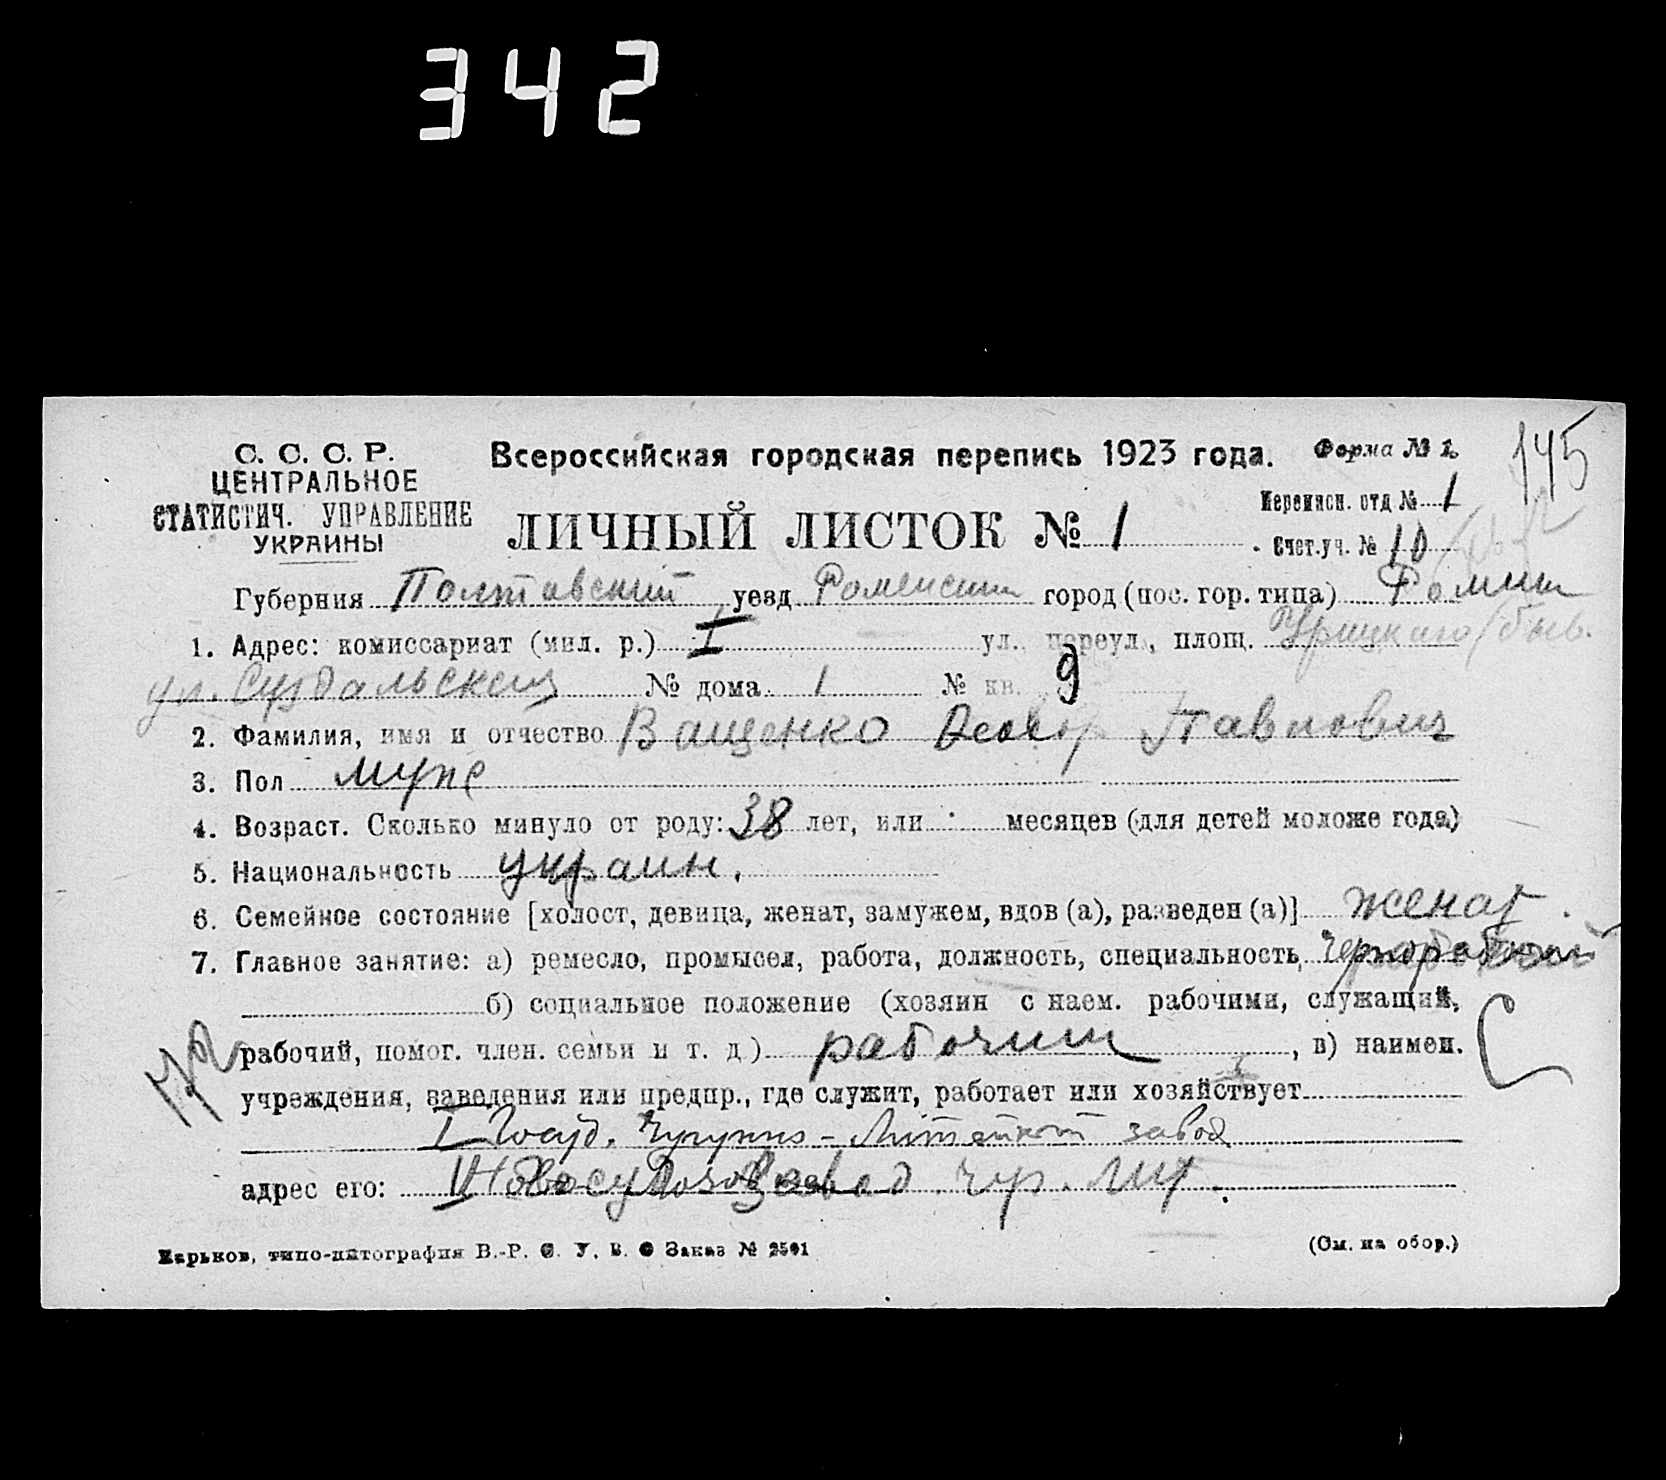 342
С. С. С. Р.
ЦЕНТРАЛЬНОЕ
СТАТИСТИЧ. УПРАВЛЕНИЕ
УКРАИНЫ
Всероссийская городская перепись 1923 года.
Форма № 1.
145
ЛИЧНЫЙ ЛИСТОК № 1
Переписн. отд № 1
Счет.уч. № 10
Губерния Полтавский уезд Роменский город (пос. гор. типа) Ромны
1. Адрес: комиссариат (мил. р.) I ул., переул., площ. Урицкого (быв.
ул. Суздальская № дома 1 № кв. 9
2. Фамилия, имя и отчество Ващенко Федор Павлович
3. Пол муж
4. Возраст. Сколько минуло от роду: 38 лет, или месяцев (для детей моложе года)
5. Национальность украин.
6. Семейное состояние [холост, девица, женат, замужем, вдов (а), разведен (а)] женат.
7. Главное занятие: а) ремесло, промысел, работа, должность, специальность, Чернорабочий
б) социальное положение (хозяин с наем. рабочими, служащий,
рабочий, помог. член. семьи и т. д) рабочий, в) наимен.
учреждения, заведения или предпр., где служит, работает или хозяйствует
I Госуд. Чугунно-Литейный завод
адрес его:
Харьков, типо-литография В.-Р. С. У. В. О Заказ № 2501
(См. на обор.)